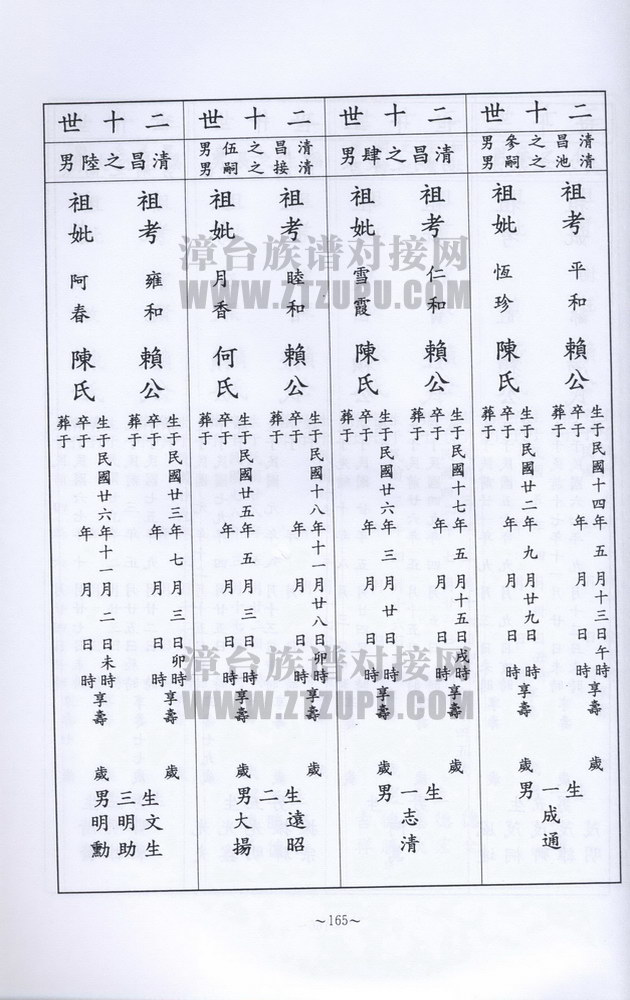 二十世
清昌之參男
清池之嗣男
祖考 平和 賴公
生于民國十四年五月十三日午時享壽 歲
卒于 年 月 日
葬于
祖妣 恆珍 陳氏
生于民國廿二年九月廿九日 時享壽
卒于 年 月 日 時
葬于
生一男 成通
二十世
清昌之肆男
祖考 仁和 賴公
生于民國十七年五月十五日戌時享壽 歲
卒于 年 月 日 時
葬于
祖妣 雪霞 陳氏
生于民國廿六年三月廿日 時享壽
卒于 年 月 日 時
葬于
生一男 志清
二十世
清昌之伍男
清接之嗣男
祖考 睦和 賴公
生于民國十八年十一月廿八日卯時享壽 歲
卒于 年 月 日 時
葬于
祖妣 月香 何氏
生于民國廿五年五月 日 時享壽 歲
卒于 年 月 日 時
葬于
生二男 遠昭
大揚
二十世
清昌之陸男
祖考 雍和 賴公
生于民國廿三年七月三日卯時享壽 歲
卒于 年 月 日 時
葬于
祖妣 阿春 陳氏
生于民國廿六年十一月二日未時享壽 歲
卒于 年 月 日 時
葬于
生三男 文生
明助
明勳
～165～
漳台族谱对接网
WWW.ZTZUPU.COM
漳台族谱对接网
WWW.ZTZUPU.COM